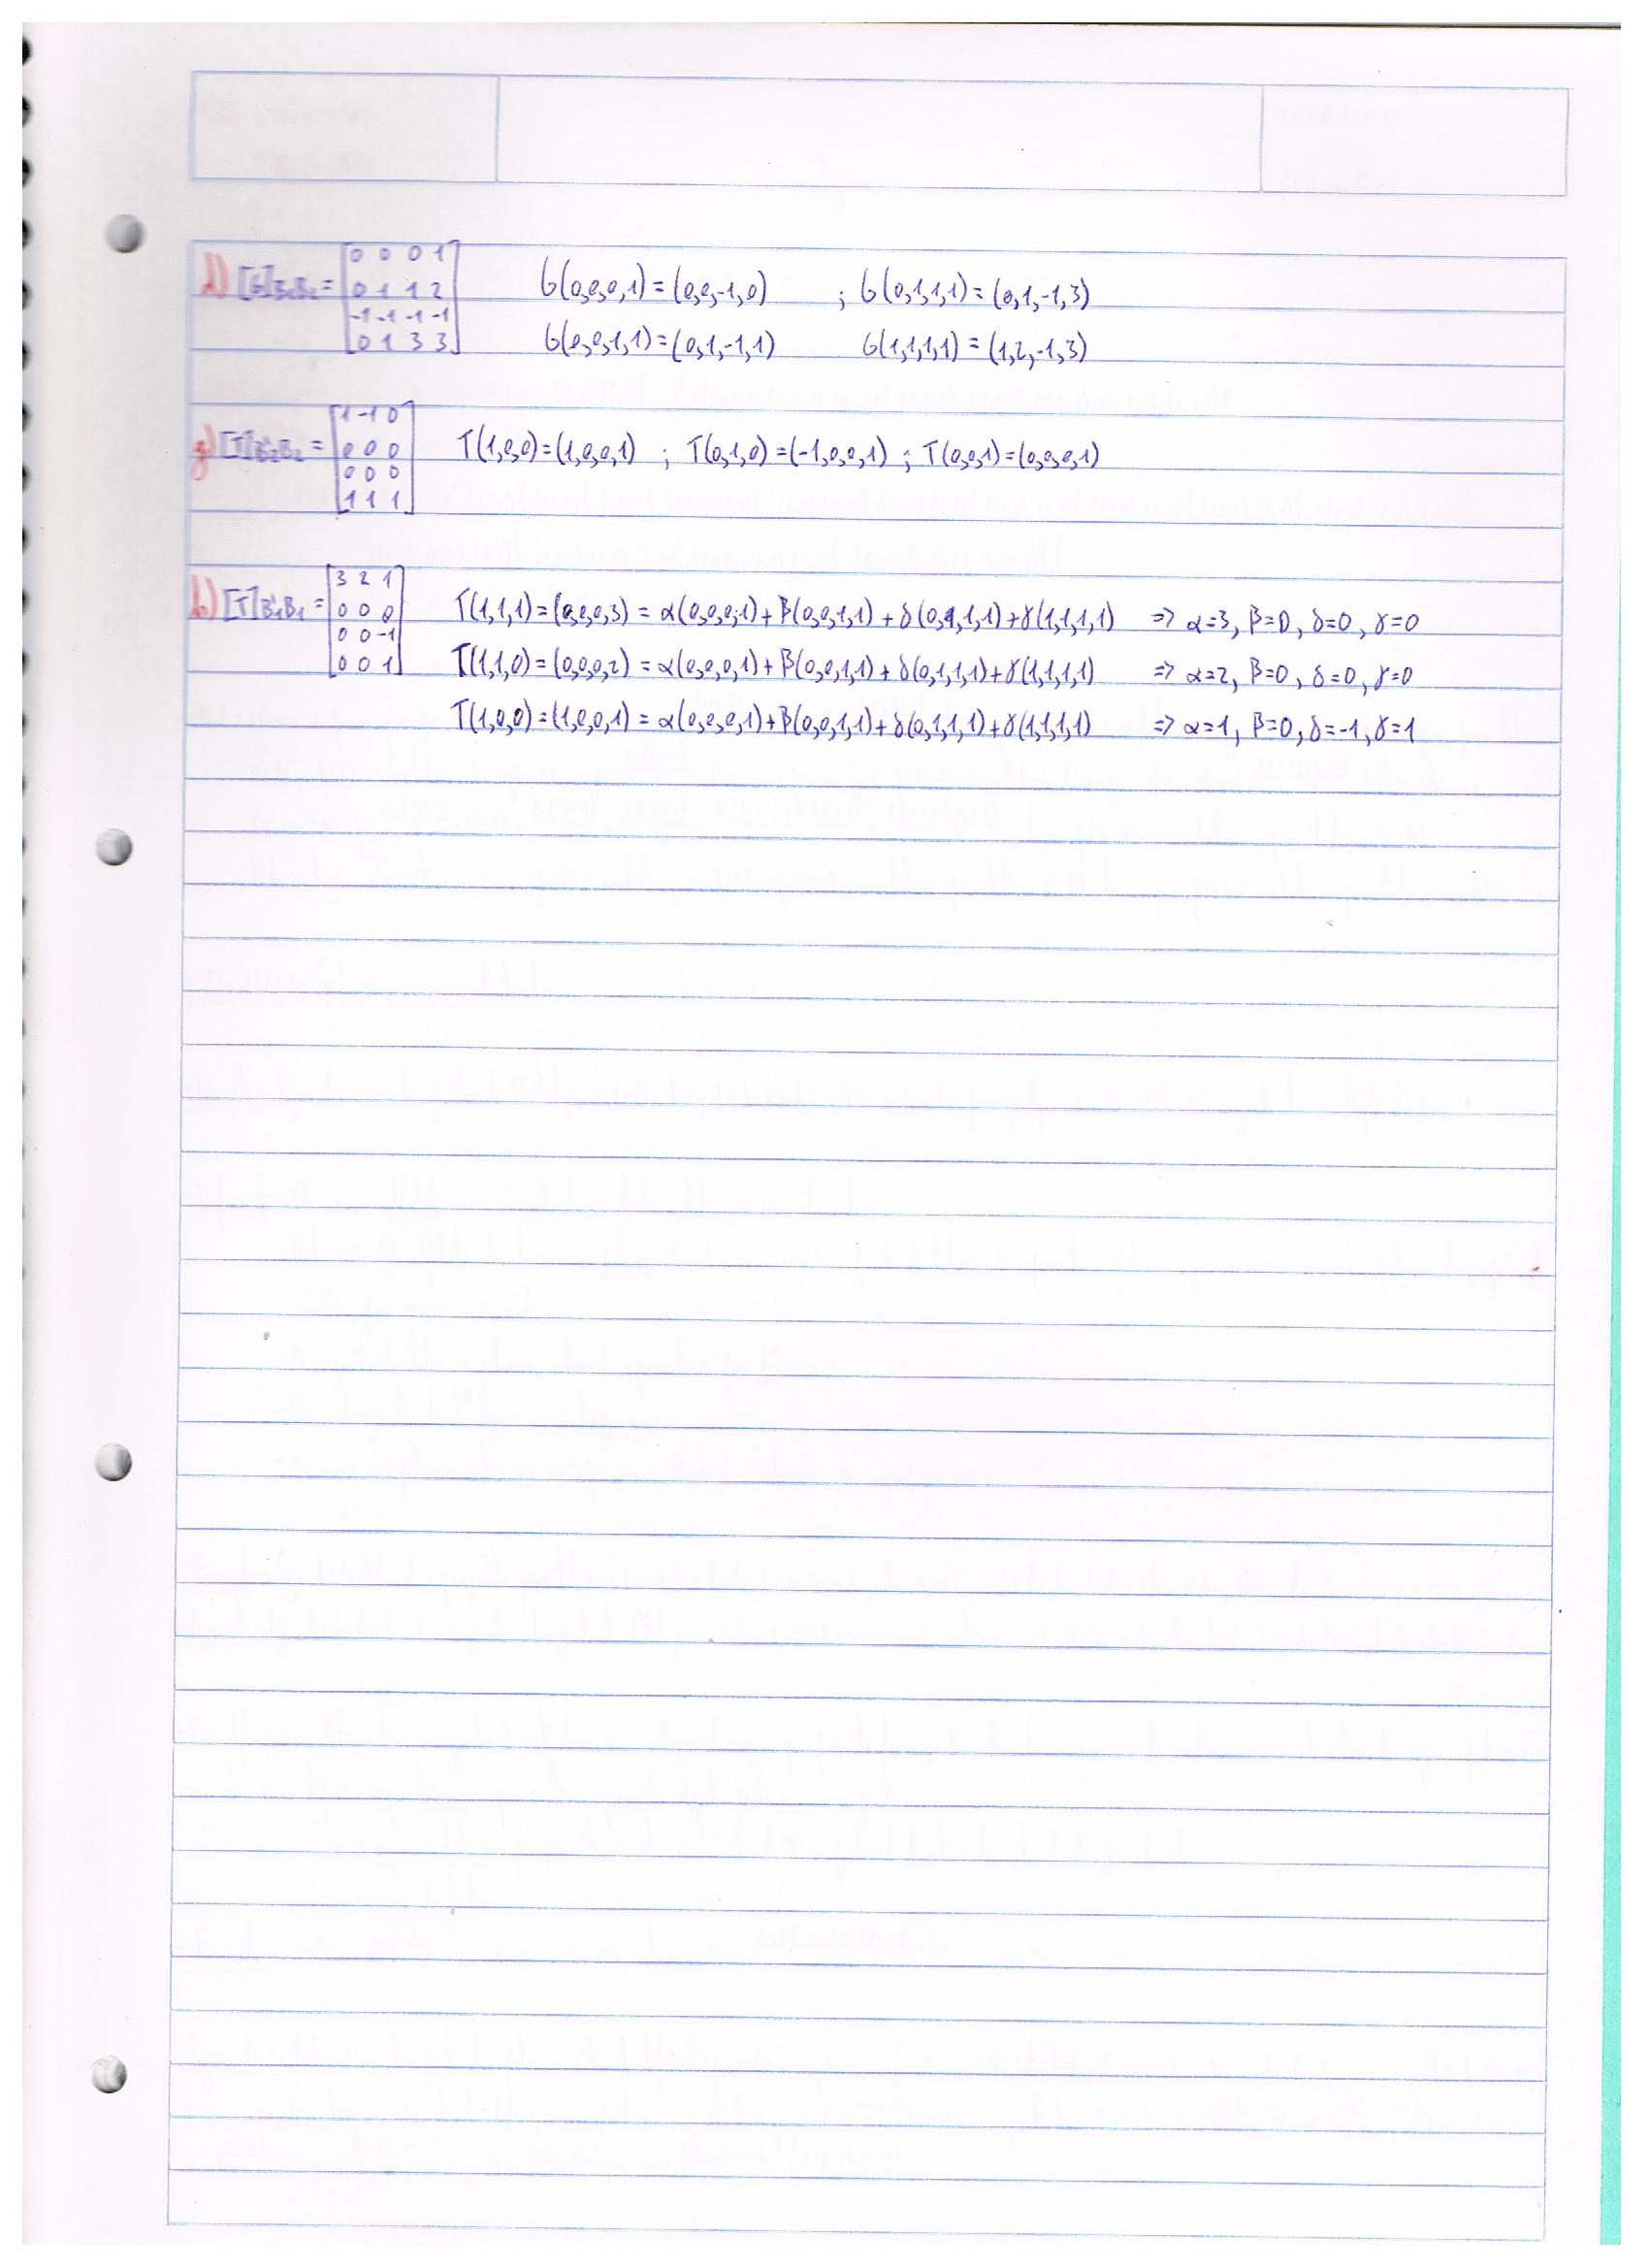 d) [G]B₁B₂ = [0 0 0 1; 0 1 1 2; -1 -1 -1 -1; 0 1 3 3] G(0,0,0,1)=(0,0,-1,0) ; G(0,1,1,1)=(0,1,-1,3)
G(0,0,1,1)=(0,1,-1,1) G(1,1,1,1)=(1,2,-1,3)
g) [T]B₂'B₂ = [1 -1 0; 0 0 0; 0 0 0; 1 1 1] T(1,0,0)=(1,0,0,1) ; T(0,1,0)=(-1,0,0,1) ; T(0,0,1)=(0,0,0,1)
h) [T]B₁'B₁ = [3 2 1; 0 0 0; 0 0 -1; 0 0 1] T(1,1,1)=(0,0,0,3)=α(0,0,0,1)+β(0,0,1,1)+δ(0,1,1,1)+γ(1,1,1,1) => α=3, β=0, δ=0, γ=0
T(1,1,0)=(0,0,0,2)=α(0,0,0,1)+β(0,0,1,1)+δ(0,1,1,1)+γ(1,1,1,1) => α=2, β=0, δ=0, γ=0
T(1,0,0)=(1,0,0,1)=α(0,0,0,1)+β(0,0,1,1)+δ(0,1,1,1)+γ(1,1,1,1) => α=1, β=0, δ=-1, γ=1